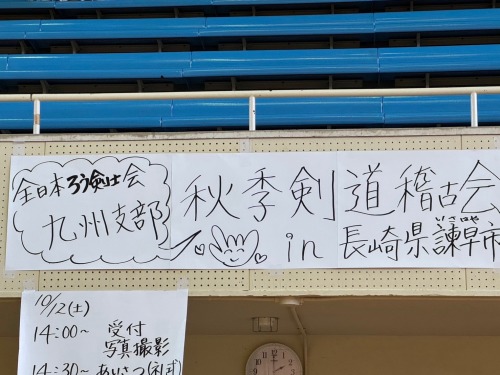 全日本ろう剣士会
九州支部
秋季剣道稽古会
in 長崎県諫早市
いさはや
10/12(土)
14:00~ 受付
写真撮影
14:30~ あいさつ(礼式